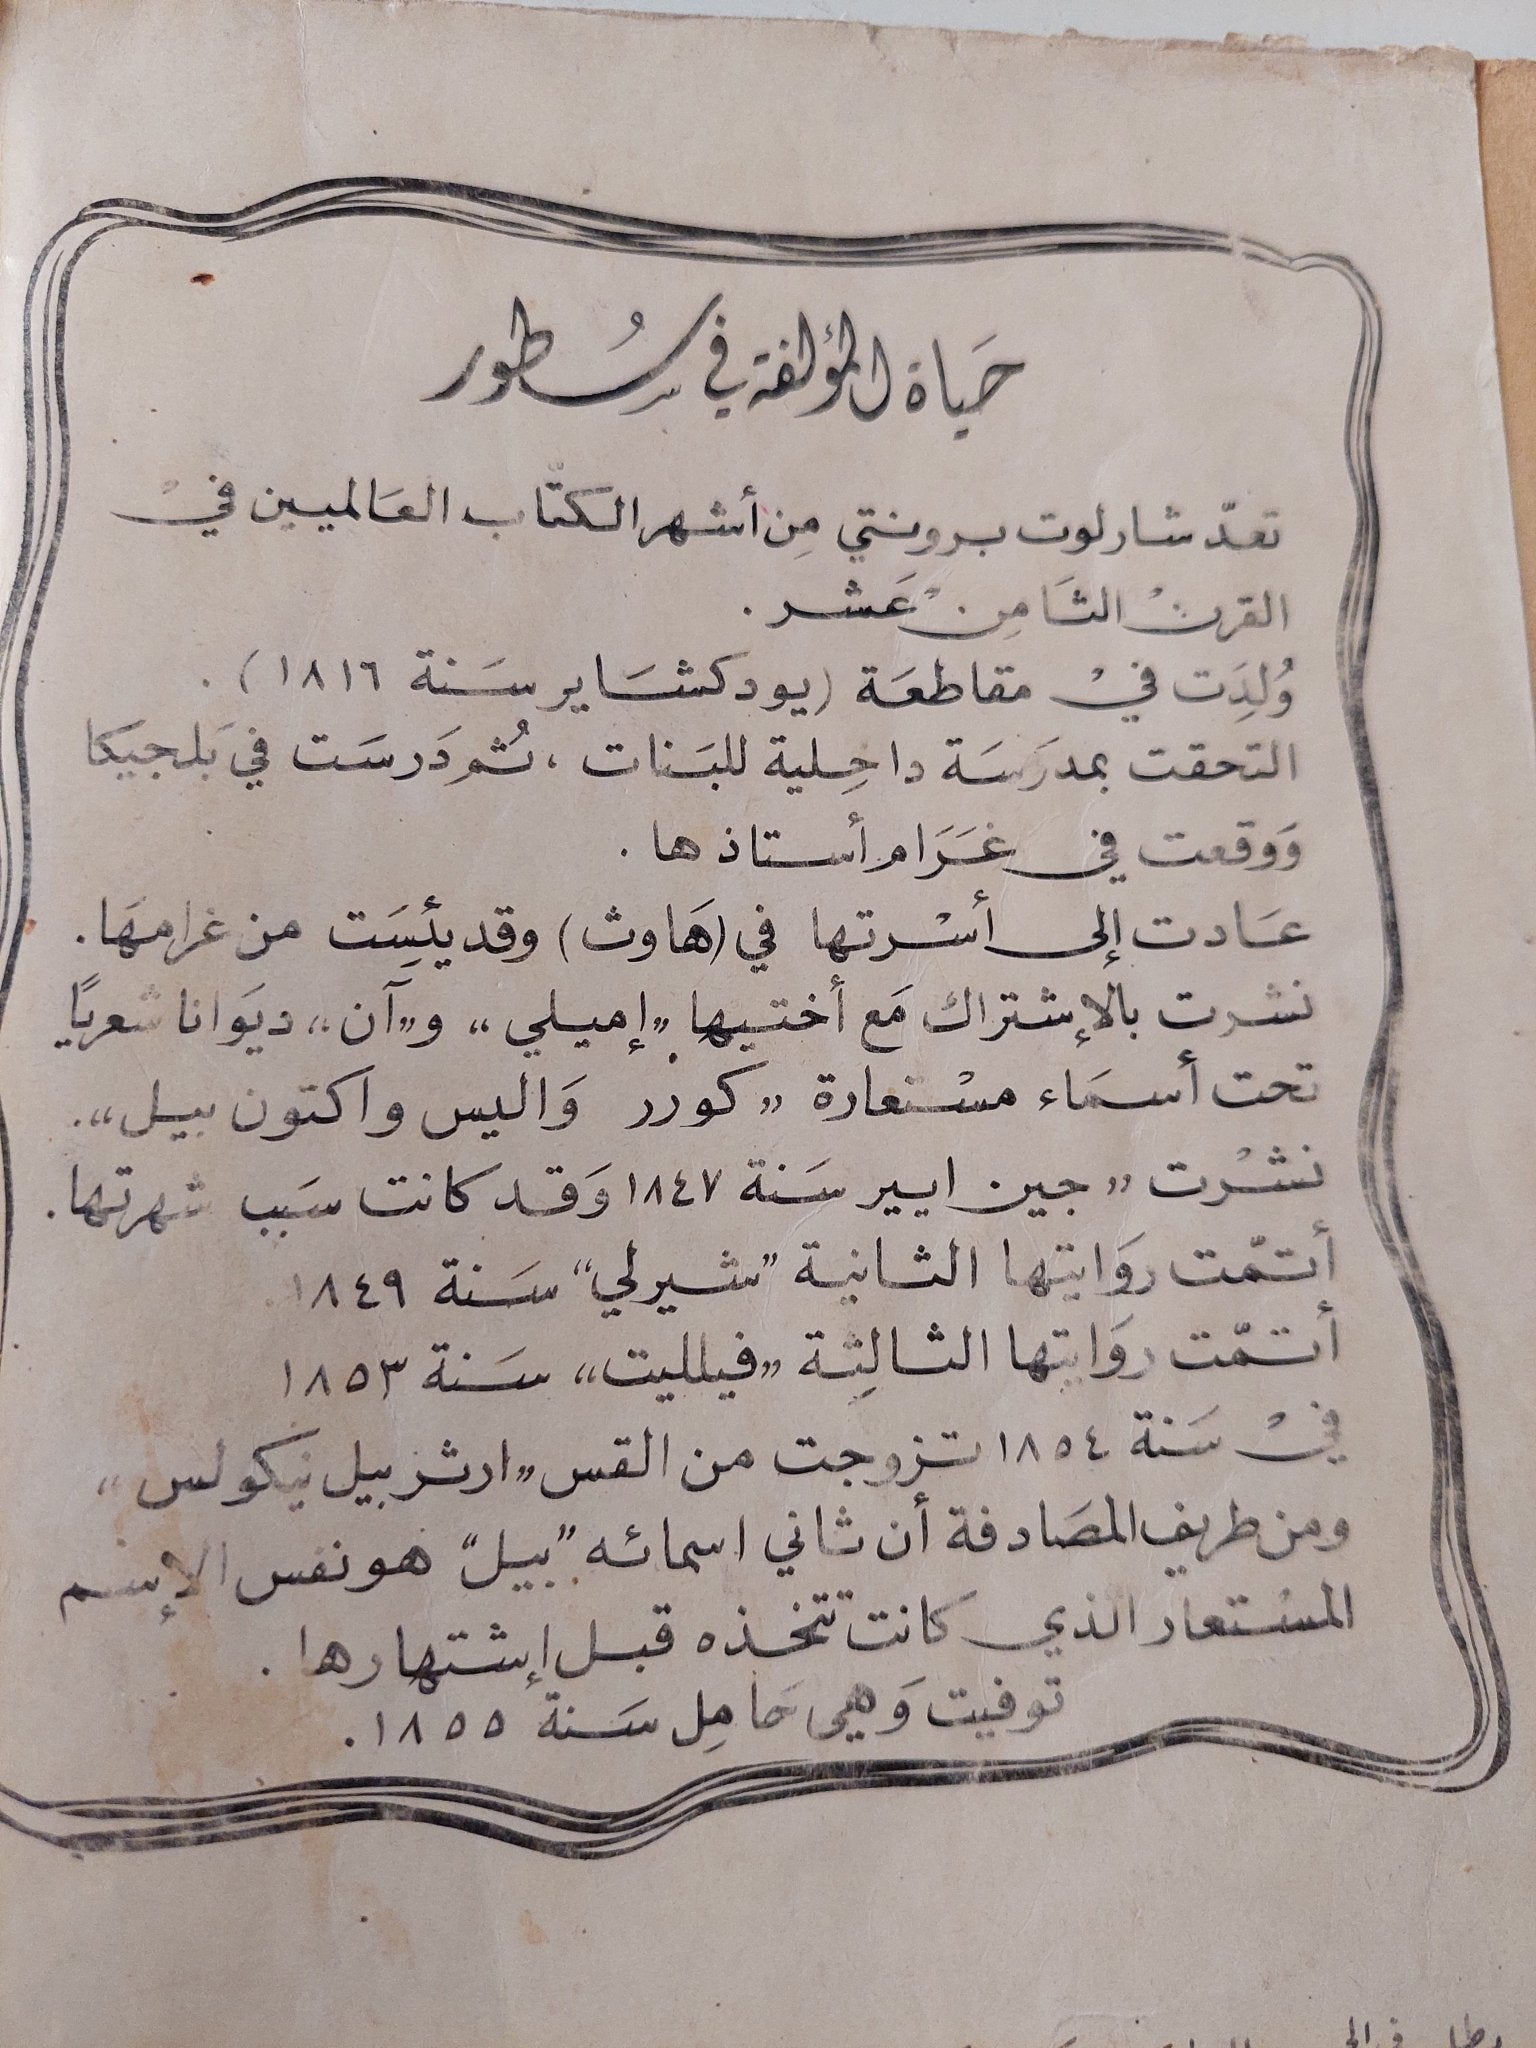 حَياة المؤلفة في سُطور
تعدّ شارلوت برونتي مِن أشهر الكتّاب العَالميين فيْ
القرنْ الثَامِنْ عَشر .
وُلِدَت فيْ مقاطعَة (يودكشَاير سَنة ١٨١٦) .
التحقت بمدرَسَة داخِلية للبَنات ، ثُم دَرسَت في بَلجيكا
وَوقعت في غرَام أستاذها .
عَادت إلى أسْرتها في (هَاوث) وقد يئِسَت من غرامهَا .
نشرت بالإشتراك مَع أختيها „إميلي“ و„آن“ ديوَانا شعريًا
تحت أسمَاء مسْتعارة „كورر وَاليس واكتون بيل“ .
نشْرت „جين ايير سَنة ١٨٤٧ وَقد كانت سَبب شهرتها .
أتمّت روَايتها الثانية "شيرلي" سَنة ١٨٤٩
أتمّت روَايتها الثالِثة „فيلليت“ سَنة ١٨٥٣
فيْ سَنة ١٨٥٤ تزوجت من القس „ارثر بيل نيكولس“
ومن طريف المصَادفة أن ثاني اسمائه "بيل" هو نفس الإسم
المسْتعار الذي كانت تتخذه قبل إشتهارها .
توفيت وَهي حَامِل سَنة ١٨٥٥ .